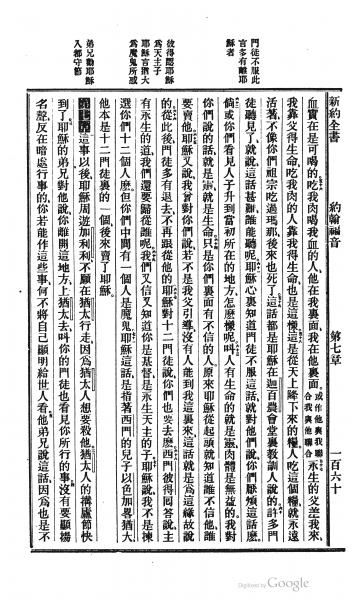 新約全書　約翰福音　第七章　一百六十
血實在是可喝的吃我肉喝我血的人他在我裏面我在他裏面或作他與我聯合我與他聯合永生的父差我來
我靠父得生命吃我肉的人靠我得生命也是這樣這是從天上降下來的糧人吃這個糧就永遠
活著不像你們祖宗吃過瑪那後來也死了這話都是耶穌在迦百農會堂裏教訓人說的許多門
徒聽見了就說這話甚難誰能聽呢耶穌心裏知道門徒不服這話就對他們說你們厭煩這話麽
倘或你們看見人子升到當初所在的地方怎麽樣呢叫人有生命的就是靈肉體是無益的我對
你們說的話就是靈就是生命只是你們裏面有不信的人原來耶穌從起頭就知道誰不信他誰
要賣他耶穌又說我曾對你們說若不是我父引導沒有人能到我這裏來這話就是爲這緣故說
的從此後門徒多有退去不再跟從他的耶穌對十二門徒說你們也要去麽西門彼得回答說主
有永生的道我們還要歸從誰呢我們又信又知道你是基督是永生天主的子耶穌說我不是揀
選你們十二個人麽但你們中間有一個人是魔鬼耶穌這話是指著西門的兒子以色加畧猶大
他本是十二門徒裏的一個後來賣了耶穌
第七章這事以後耶穌周遊加利利不願在猶太行走因爲猶太人想要殺他猶太人的搆廬節快
到了耶穌的弟兄對他說你離開這地方上猶太去叫你的門徒也看見你所行的事沒有要顯揚
名聲反在暗處行事的你若能作這些事何不將自己顯明給世人看他弟兄說這話因爲也是不
門徒不服此
言多有離耶
穌者
彼得認耶穌
爲天主子
耶穌言猶大
爲魔鬼所惑
弟兄勸耶穌
入都守節
Digitized by Google